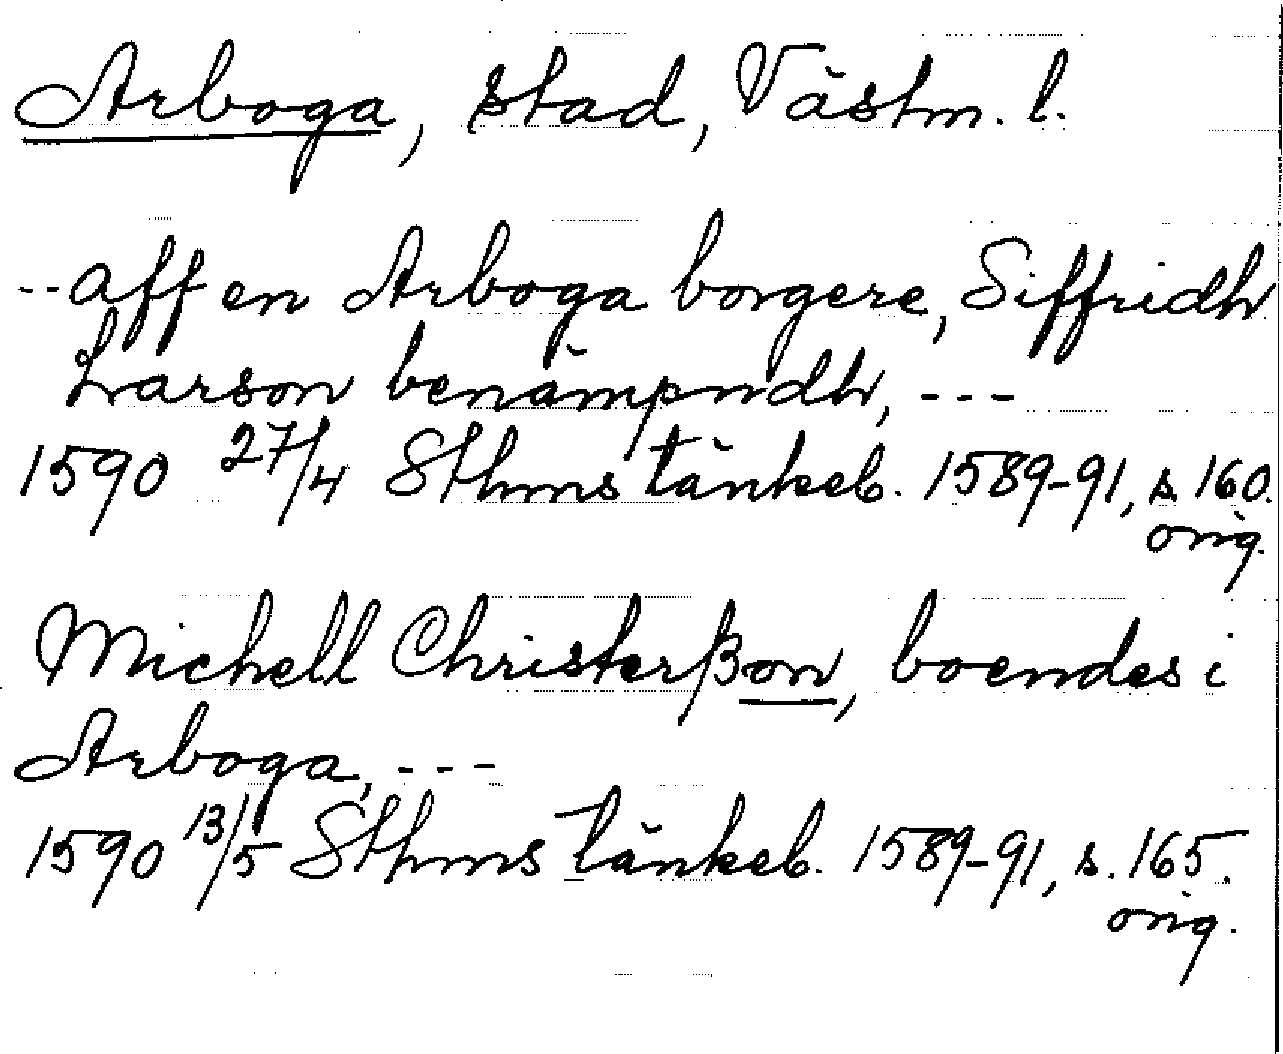 Arboga, stad, Västm. l.
--aff en Arboga borgere, Siffridh
Larson benämpndh, ---
1590 27/4 Sthms tänkeb. 1589-91, s. 160.
orig.
Michell Christerßon, boendes i
Arboga, ---
1590 13/5 Sthms tänkeb. 1589-91, s. 165.
orig.